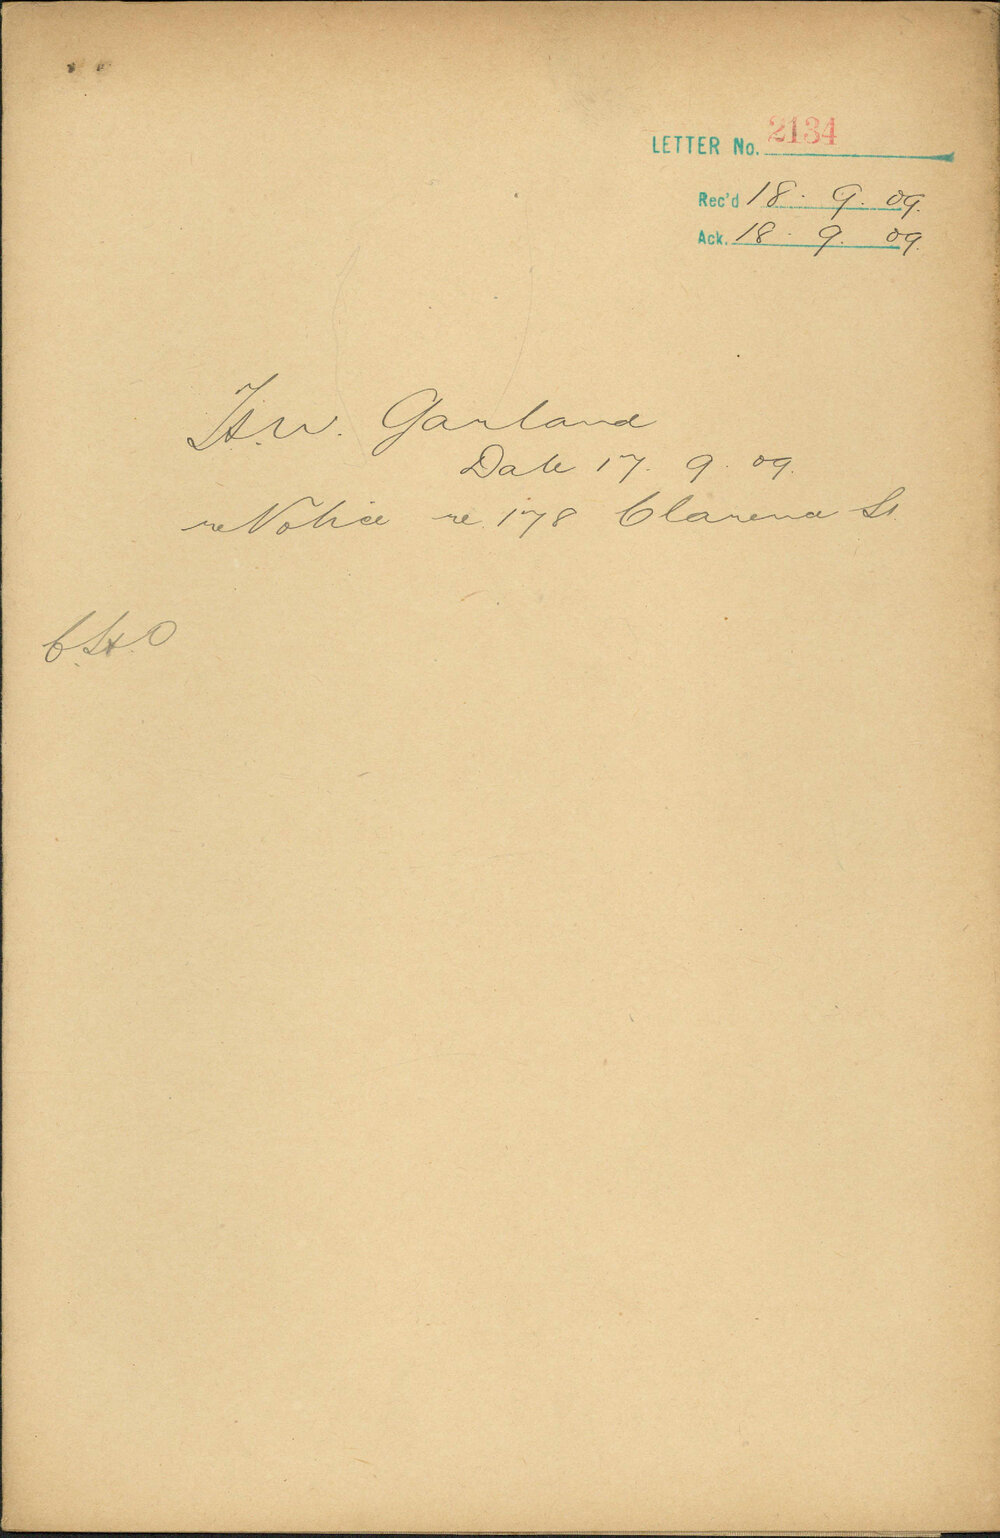 LETTER No. 2134
Rec'd 18. 9. 09.
Ack. 18. 9. 09.
H.W. Garland
Date 17. 9. 09.
re Notice re 178 Clarence St.
C.H.O